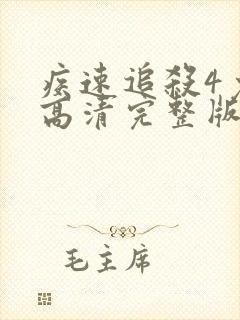 疾速追殺4
高清完整版
毛主席